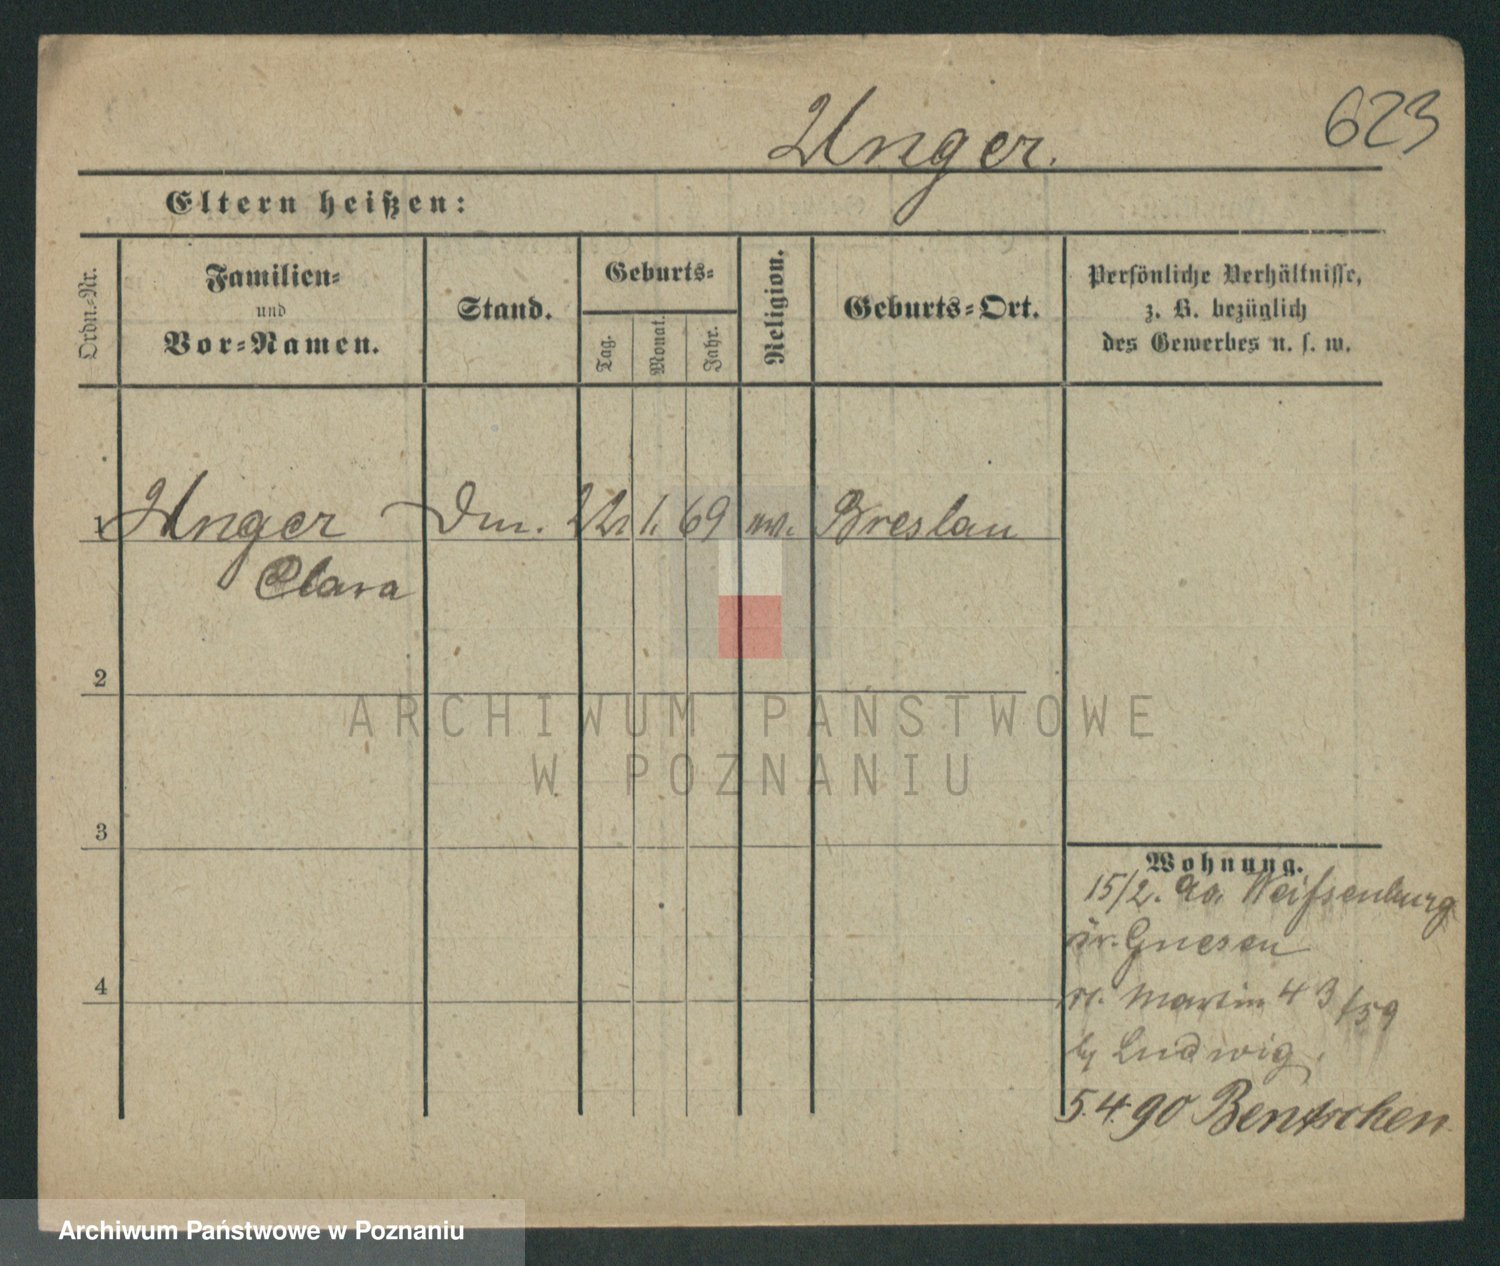 623
Unger.
Eltern heißen:
Ordn.-Nr.
Familien-
und
Vor-Namen.
Stand.
Geburts-
Tag.
Monat.
Jahr.
Religion.
Geburts-Ort.
Persönliche Verhältnisse,
z. B. bezüglich
des Gewerbes u. s. w.
1 Unger 22. 1. 69 Breslau
Clara
2
3
4
Wohnung.
15/2. 90. Weißenburg
Kr. Gnesen
St. Martin 43/59
Ludwig.
5.4.90 Bentschen
ARCHIWUM PAŃSTWOWE
W POZNANIU
Archiwum Państwowe w Poznaniu